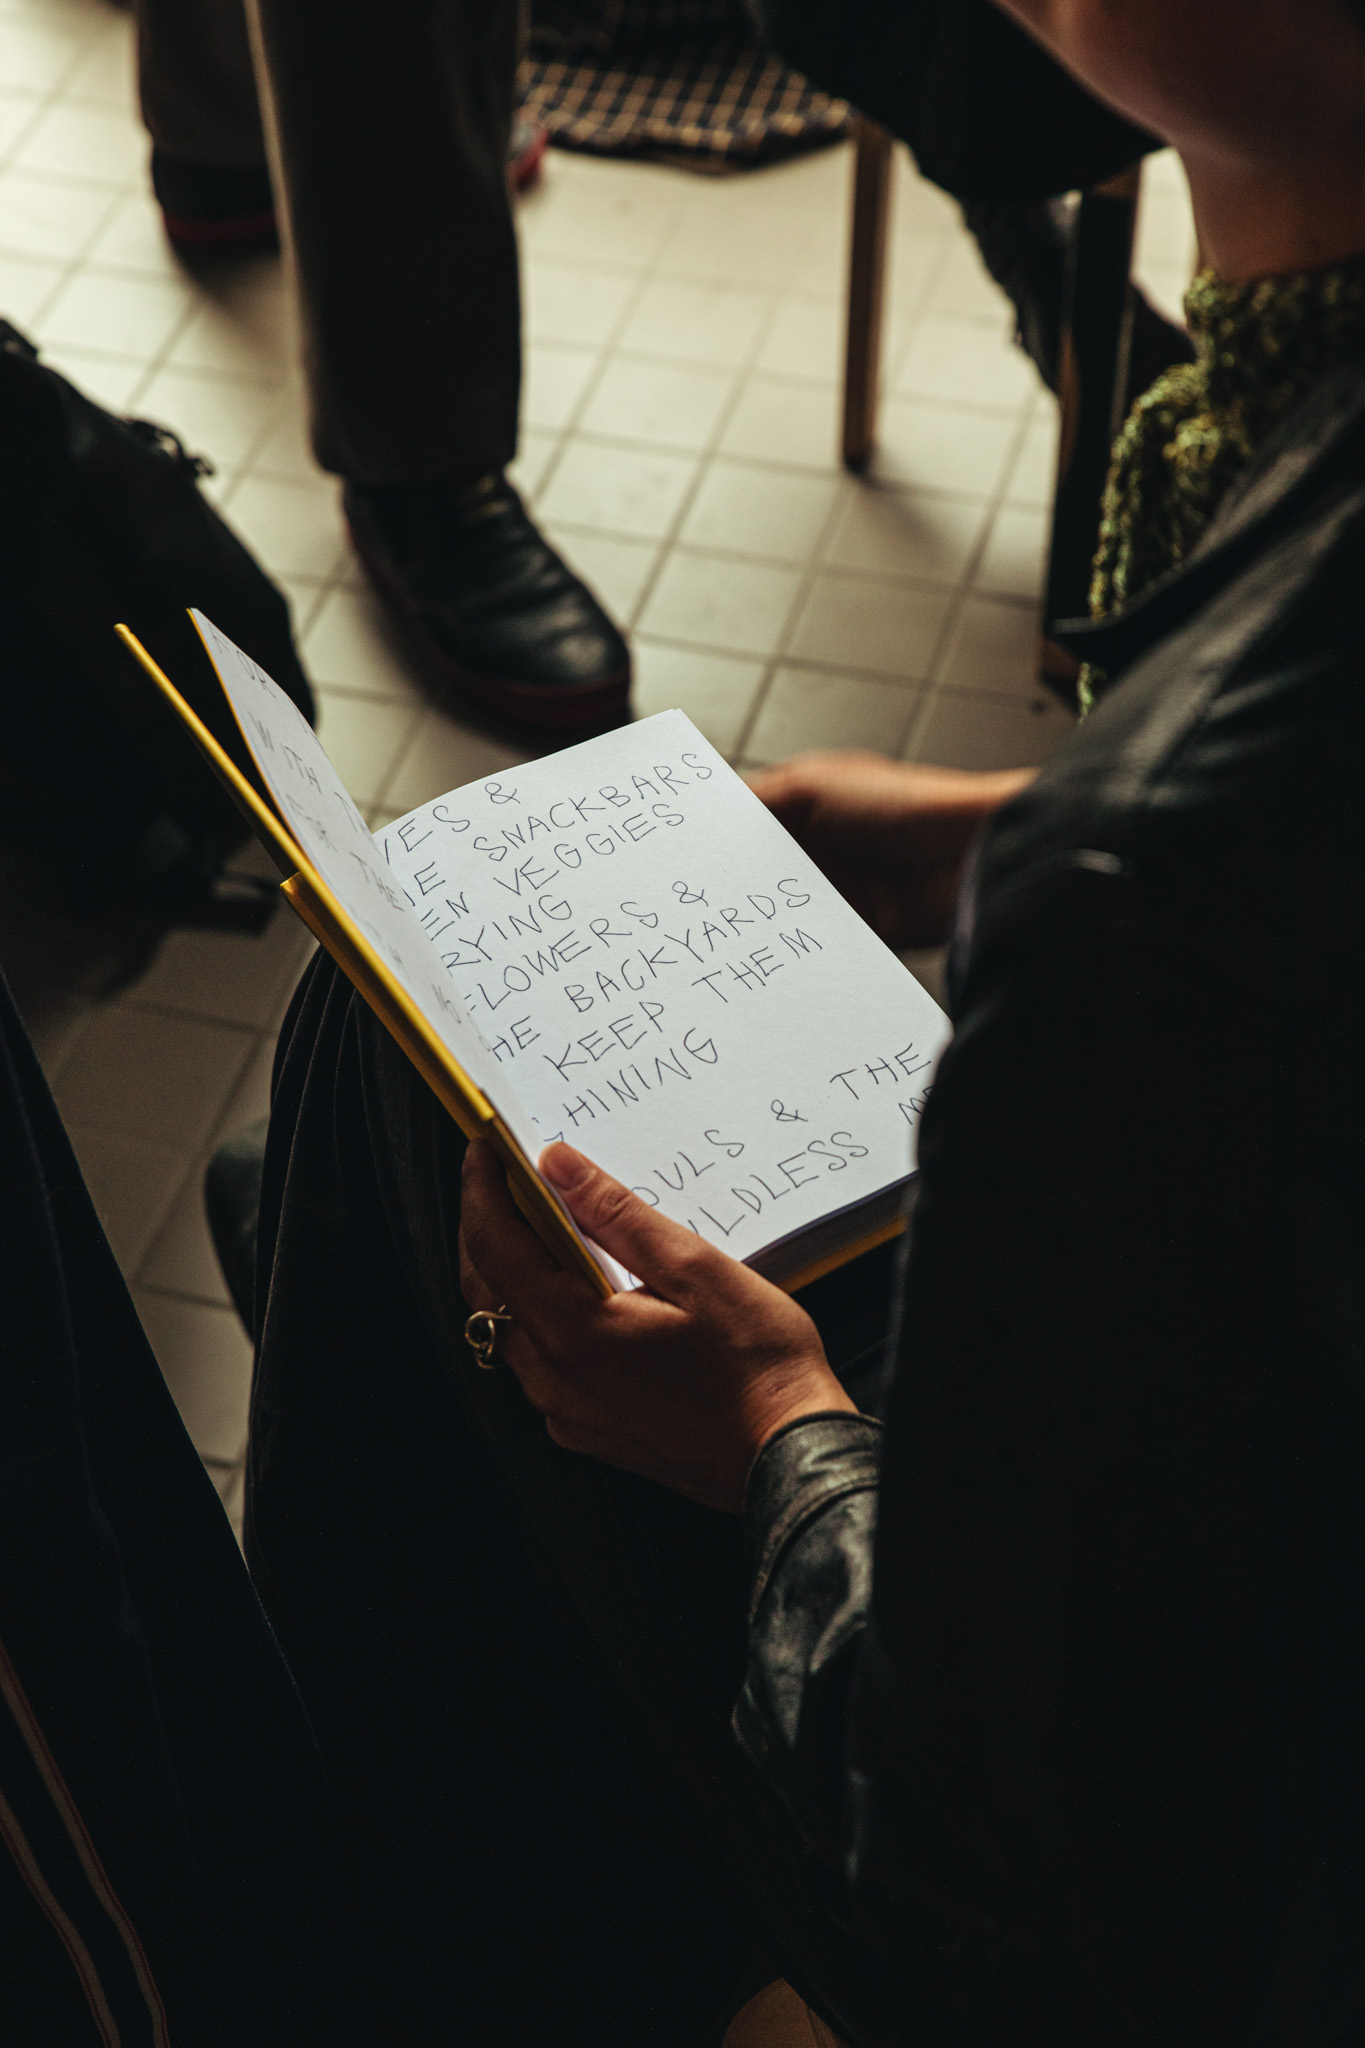 OR
WITH
FOR THE
VES &
HE SNACKBARS
EN VEGGIES
RYING
FLOWERS &
HE BACKYARDS
KEEP THEM
SHINING
OULS & THE
NDLESS